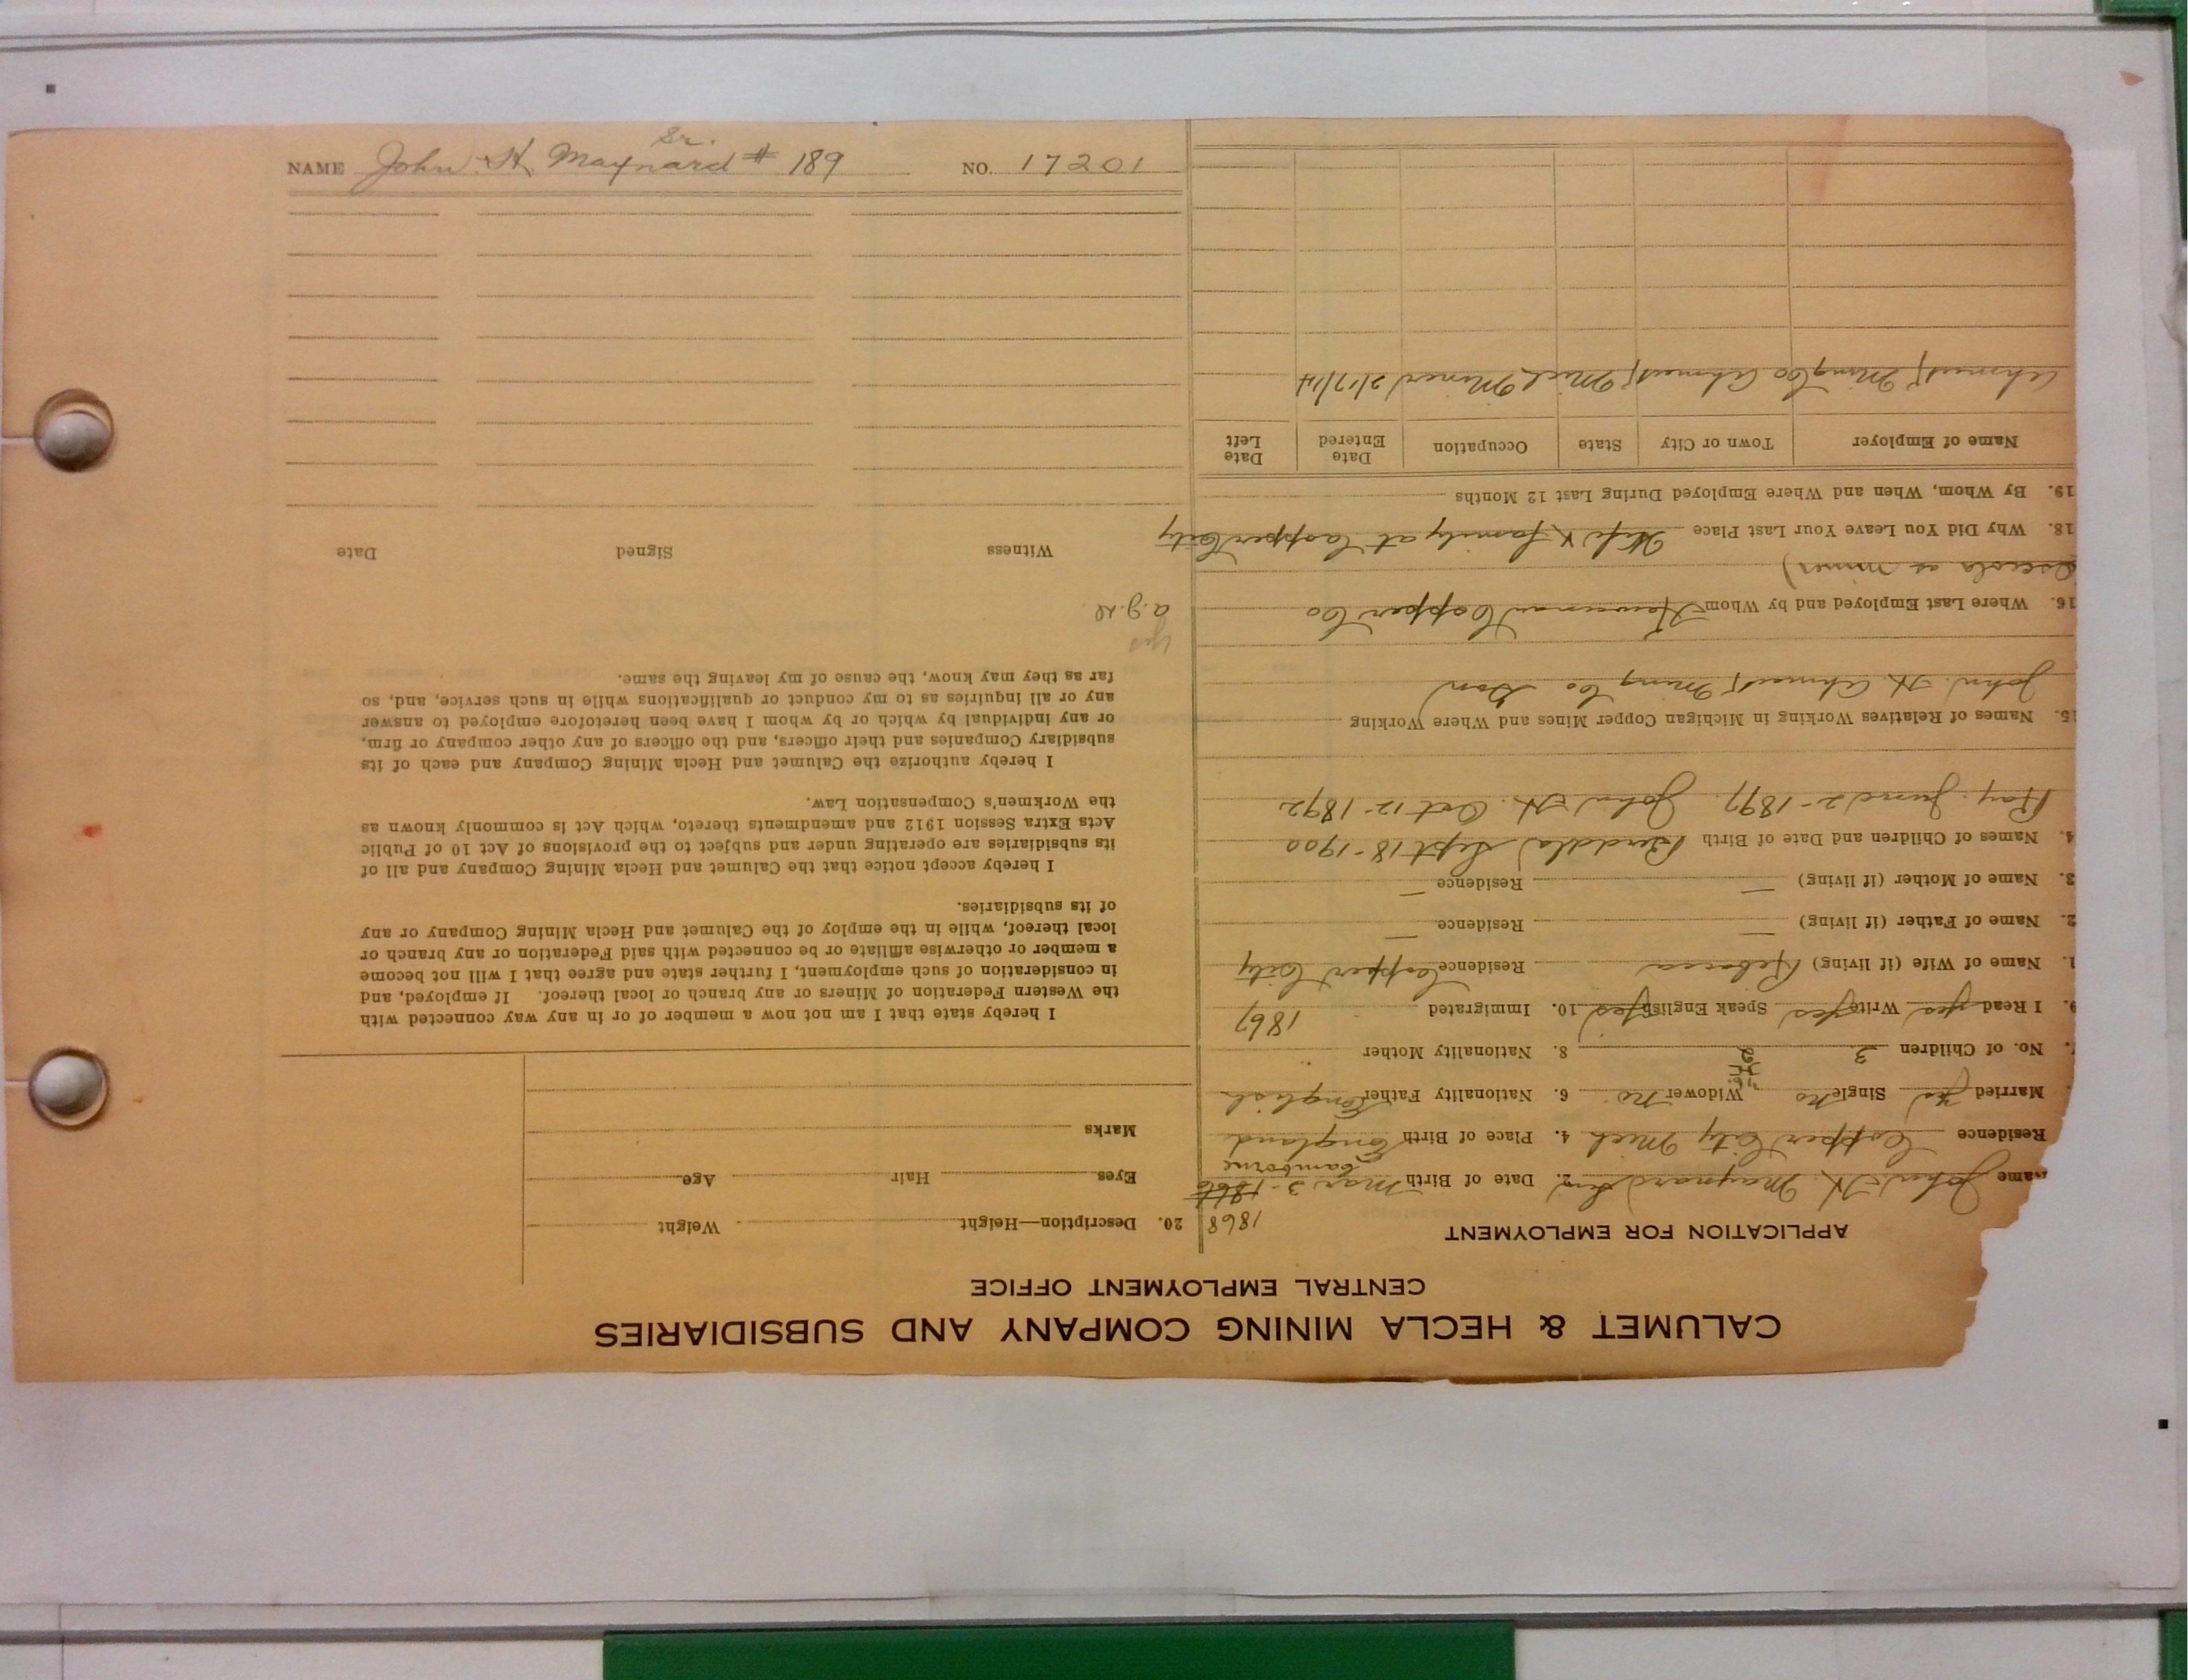 NAME John. H. Maynard Sr. # 189 NO. 17201
CALUMET & HECLA MINING COMPANY AND SUBSIDIARIES
CENTRAL EMPLOYMENT OFFICE
APPLICATION FOR EMPLOYMENT
Name John H. Maynard 2. Date of Birth Mar 3 - 1866 1868
Residence Copper City Mich 4. Place of Birth Camborne England
Married yes Single no Widower no 6. Nationality Father English
No. of Children 3 2 8. Nationality Mother
9. I Read yes Write yes Speak English yes 10. Immigrated 1867
1. Name of Wife (if living) Rebecca Residence Copper City
2. Name of Father (if living) — Residence —
3. Name of Mother (if living) — Residence —
4. Names of Children and Date of Birth Sept 18 - 1900
Ray. June 2 - 1897. John H. Oct 12 - 1892
15. Names of Relatives Working in Michigan Copper Mines and Where Working
John. H. Ahmeek Ming Co Son
16. Where Last Employed and by Whom Keweenaw Copper Co
Osceola as miner)
18. Why Did You Leave Your Last Place Wife & family at Copper City
19. By Whom, When and Where Employed During Last 12 Months
Name of Employer Town or City State Occupation Date Entered Date Left
Ahmeek Ming Co Ahmeek Mich Miner 2/17/14
20. Description—Height Weight
Eyes Hair Age
Marks
I hereby state that I am not now a member of or in any way connected with
the Western Federation of Miners or any branch or local thereof. If employed, and
in consideration of such employment, I further state and agree that I will not become
a member or otherwise affiliate or be connected with said Federation or any branch or
local thereof, while in the employ of the Calumet and Hecla Mining Company or any
of its subsidiaries.
I hereby accept notice that the Calumet and Hecla Mining Company and all of
its subsidiaries are operating under and subject to the provisions of Act 10 of Public
Acts Extra Session 1912 and amendments thereto, which Act is commonly known as
the Workmen's Compensation Law.
I hereby authorize the Calumet and Hecla Mining Company and each of its
subsidiary Companies and their officers, and the officers of any other company or firm,
or any individual by which or by whom I have been heretofore employed to answer
any or all inquiries as to my conduct or qualifications while in such service, and, so
far as they may know, the cause of my leaving the same.
yes
Witness Signed Date